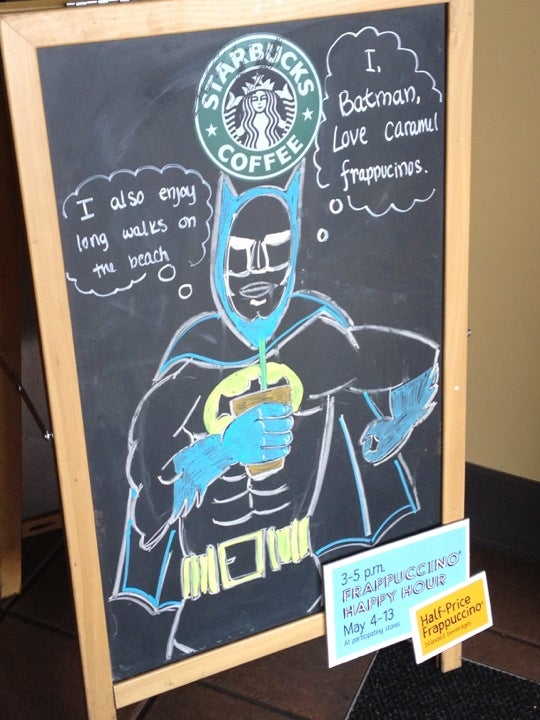 STARBUCKS
COFFEE
I,
Batman,
Love caramul
frappucinos.
I also enjoy
long walks on
the beach
3-5 p.m.
FRAPPUCCINO®
HAPPY HOUR
May 4-13
At participating stores
Half-Price
Frappuccino®
blended beverages